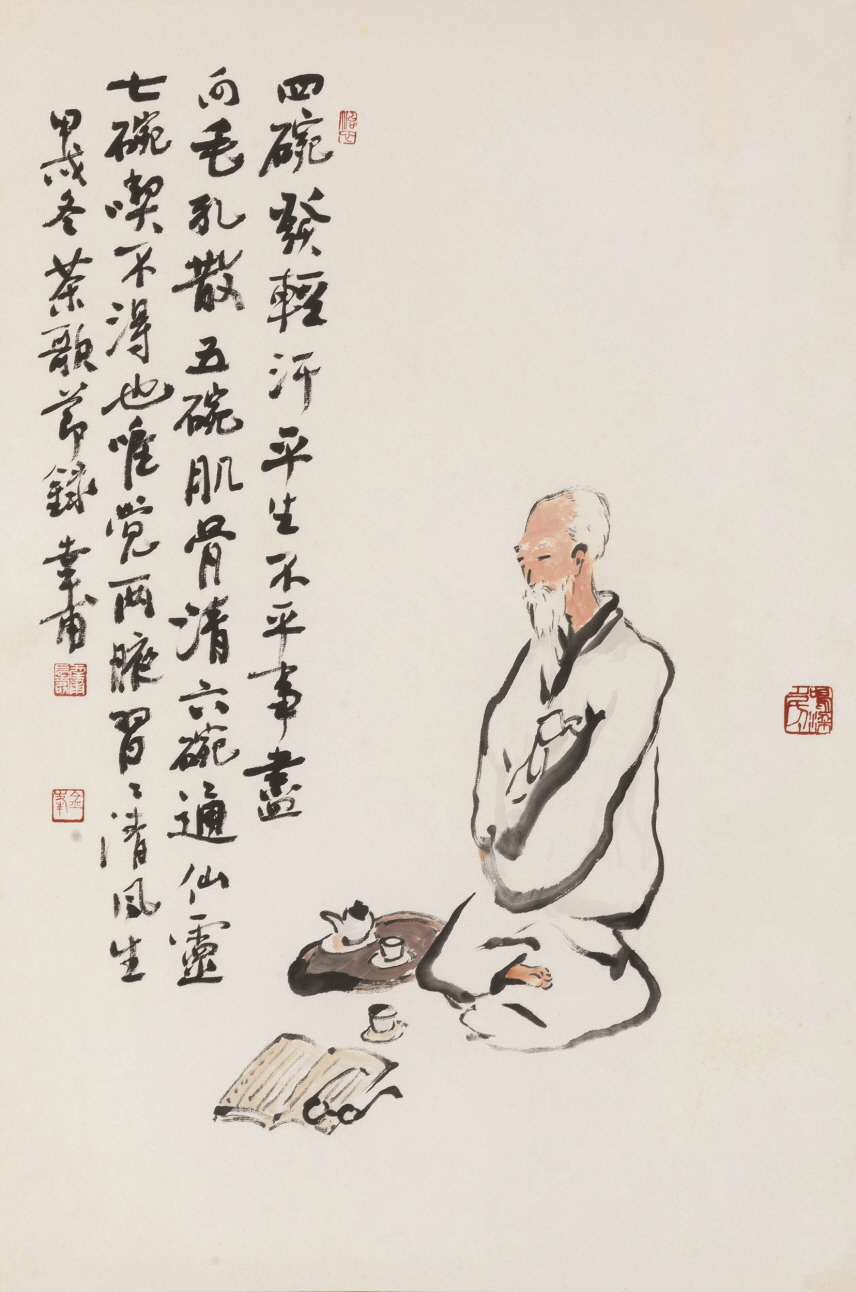 四碗發輕汗平生不平事盡
向毛孔散五碗肌骨清六碗通仙靈
七碗喫不得也唯覺兩腋習〻清風生
甲戌冬茶歌節錄 幸甫